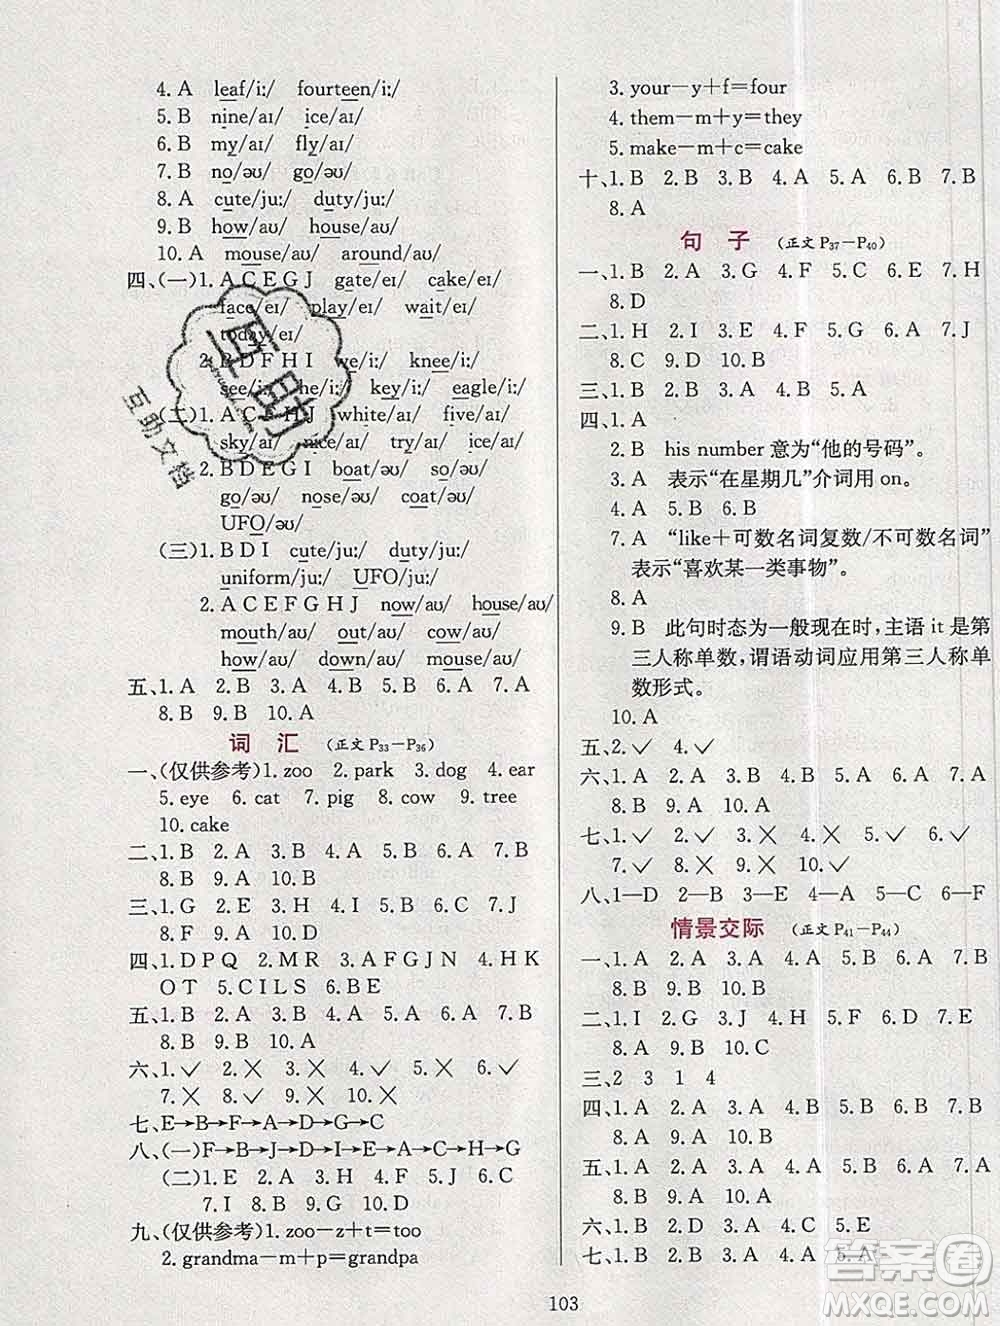 4. A leaf/i:/ fourteen/i:/
5. B nine/aɪ/ ice/aɪ/
6. B my/aɪ/ fly/aɪ/
7. B no/əʊ/ go/əʊ/
8. A cute/ju:/ duty/ju:/
9. B how/aʊ/ house/aʊ/
10. A mouse/aʊ/ around/aʊ/
四、(一)1. A C E G J gate/eɪ/ cake/eɪ/
face/eɪ/ play/eɪ/ wait/eɪ/
today/eɪ/
2. B D F H I we/i:/ knee/i:/
see/i:/ he/i:/ key/i:/ eagle/i:/
(二)1. A C F H J white/aɪ/ five/aɪ/
sky/aɪ/ nice/aɪ/ try/aɪ/ ice/aɪ/
2. B D E G I boat/əʊ/ so/əʊ/
go/əʊ/ nose/əʊ/ coat/əʊ/
UFO/əʊ/
(三)1. B D I cute/ju:/ duty/ju:/
uniform/ju:/ UFO/ju:/
2. A C E F G H J now/aʊ/ house/aʊ/
mouth/aʊ/ out/aʊ/ cow/aʊ/
how/aʊ/ down/aʊ/ mouse/aʊ/
五、1. A 2. B 3. B 4. A 5. A 6. A 7. A
8. B 9. B 10. A
词 汇 (正文 P33—P36)
一、(仅供参考)1. zoo 2. park 3. dog 4. ear
5. eye 6. cat 7. pig 8. cow 9. tree
10. cake
二、1. B 2. A 3. B 4. A 5. B 6. A 7. B
8. B 9. A 10. B
三、1. G 2. E 3. H 4. I 5. B 6. C 7. J
8. F 9. A 10. D
四、1. D P Q 2. M R 3. A F G J N 4. H K
O T 5. C I L S 6. B E
五、1. B 2. A 3. B 4. A 5. A 6. A 7. B
8. B 9. B 10. A
六、1. ✓ 2. ✗ 3. ✗ 4. ✗ 5. ✓ 6. ✓
7. ✗ 8. ✓ 9. ✗ 10. ✓
七、E→B→F→A→D→G→C
八、(一)F→B→J→D→I→E→A→C→H→G
(二)1. E 2. A 3. H 4. F 5. J 6. C
7. I 8. B 9. G 10. D
九、(仅供参考)1. zoo—z+t=too
2. grandma—m+p=grandpa
3. your—y+f=four
4. them—m+y=they
5. make—m+c=cake
十、1. B 2. B 3. B 4. A 5. A 6. B 7. B
8. A
句 子 (正文 P37—P40)
一、1. B 2. A 3. G 4. F 5. C 6. E 7. H
8. D
二、1. H 2. I 3. E 4. F 5. G 6. A 7. J
8. C 9. D 10. B
三、1. B 2. A 3. B 4. B 5. A
四、1. A
2. B his number 意为“他的号码”。
3. A 表示“在星期几”介词用 on。
4. A 5. B 6. B
7. A “like+可数名词复数/不可数名词”
表示“喜欢某一类事物”。
8. A
9. B 此句时态为一般现在时，主语 it 是第
三人称单数，谓语动词应用第三人称单
数形式。
10. A
五、2. ✓ 4. ✓
六、1. B 2. A 3. B 4. A 5. B 6. A 7. A
8. B 9. A 10. A
七、1. ✓ 2. ✓ 3. ✗ 4. ✗ 5. ✓ 6. ✓
7. ✓ 8. ✗ 9. ✗ 10. ✓
八、1—D 2—B 3—E 4—A 5—C 6—F
情景交际 (正文 P41—P44)
一、1. A 2. A 3. A 4. A 5. B 6. B 7. A
8. B 9. A 10. B
二、1. I 2. G 3. J 4. H 5. F 6. D 7. E
8. A 9. B 10. C
三、2 3 1 4
四、1. A 2. A 3. B 4. A 5. B 6. B 7. B
8. A 9. A 10. B
五、1. A 2. A 3. B 4. A 5. B 6. A 7. A
8. A 9. B 10. A
六、1. B 2. C 3. D 4. A 5. E
七、1. B 2. B 3. B 4. A 5. A
103
互助
互助文档
答案圈
MXQE.COM